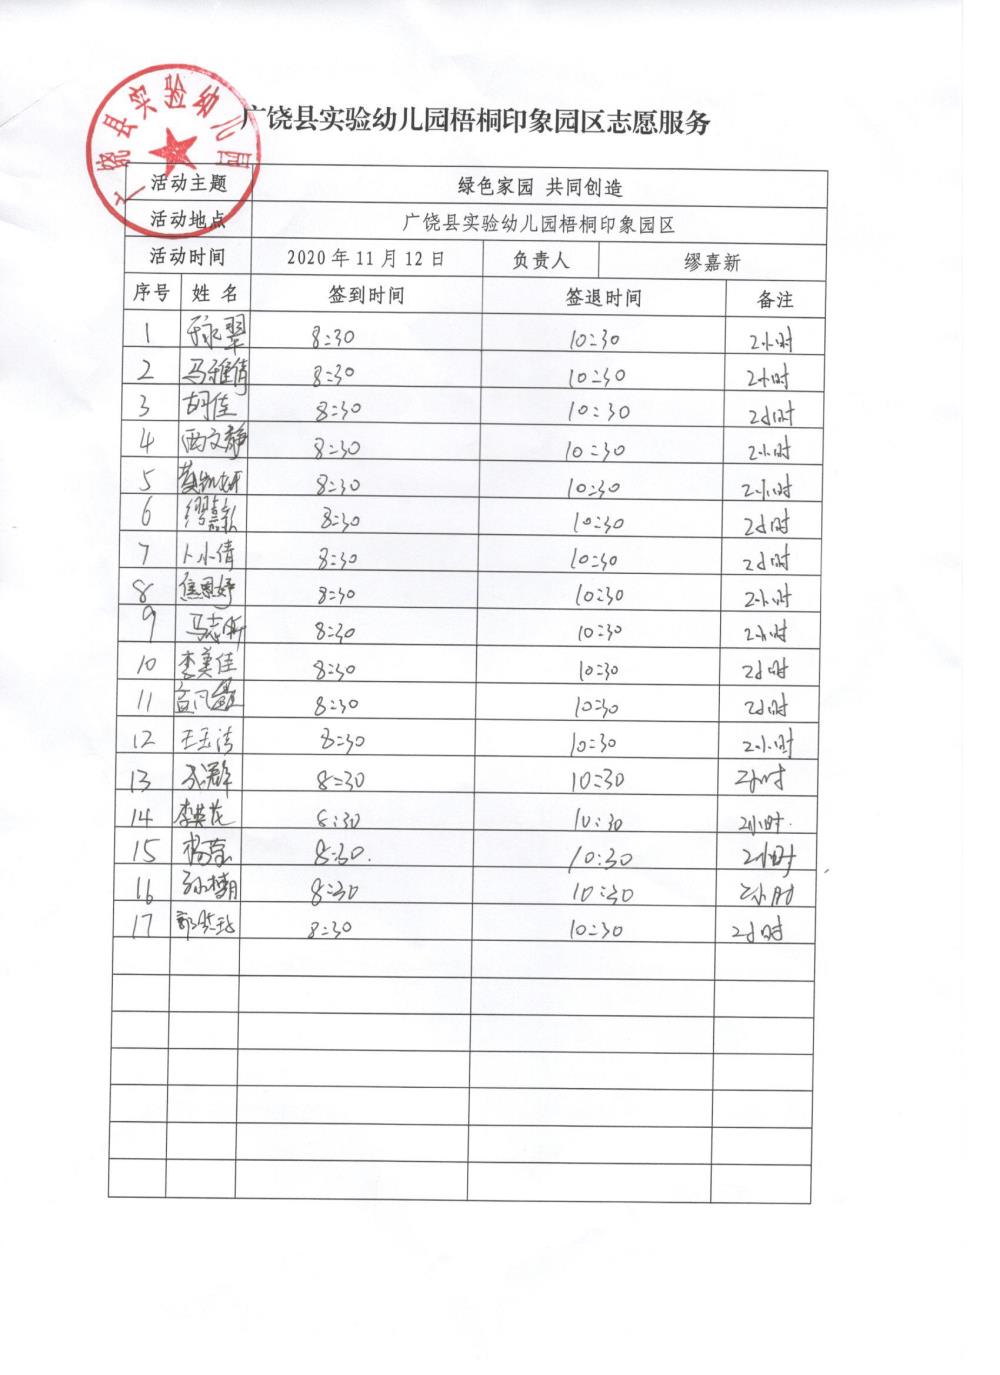 广饶县实验幼儿园
广饶县实验幼儿园梧桐印象园区志愿服务
活动主题 绿色家园 共同创造
活动地点 广饶县实验幼儿园梧桐印象园区
活动时间 2020年11月12日 负责人 缪嘉新
序号 姓名 签到时间 签退时间 备注
1 8:30 10:30 2小时
2 马雅倩 8:30 10:30 2小时
3 胡佳 8:30 10:30 2小时
4 西文静 8:30 10:30 2小时
5 8:30 10:30 2小时
6 缪嘉新 8:30 10:30 2小时
7 卜小倩 8:30 10:30 2小时
8 焦恩婷 8:30 10:30 2小时
9 马志昕 8:30 10:30 2小时
10 李美佳 8:30 10:30 2小时
11 8:30 10:30 2小时
12 王玉洁 8:30 10:30 2小时
13 8:30 10:30 2小时
14 李英花 8:30 10:30 2小时.
15 8:30. 10:30 2小时
16 8:30 10:30 2小时
17 8:30 10:30 2小时